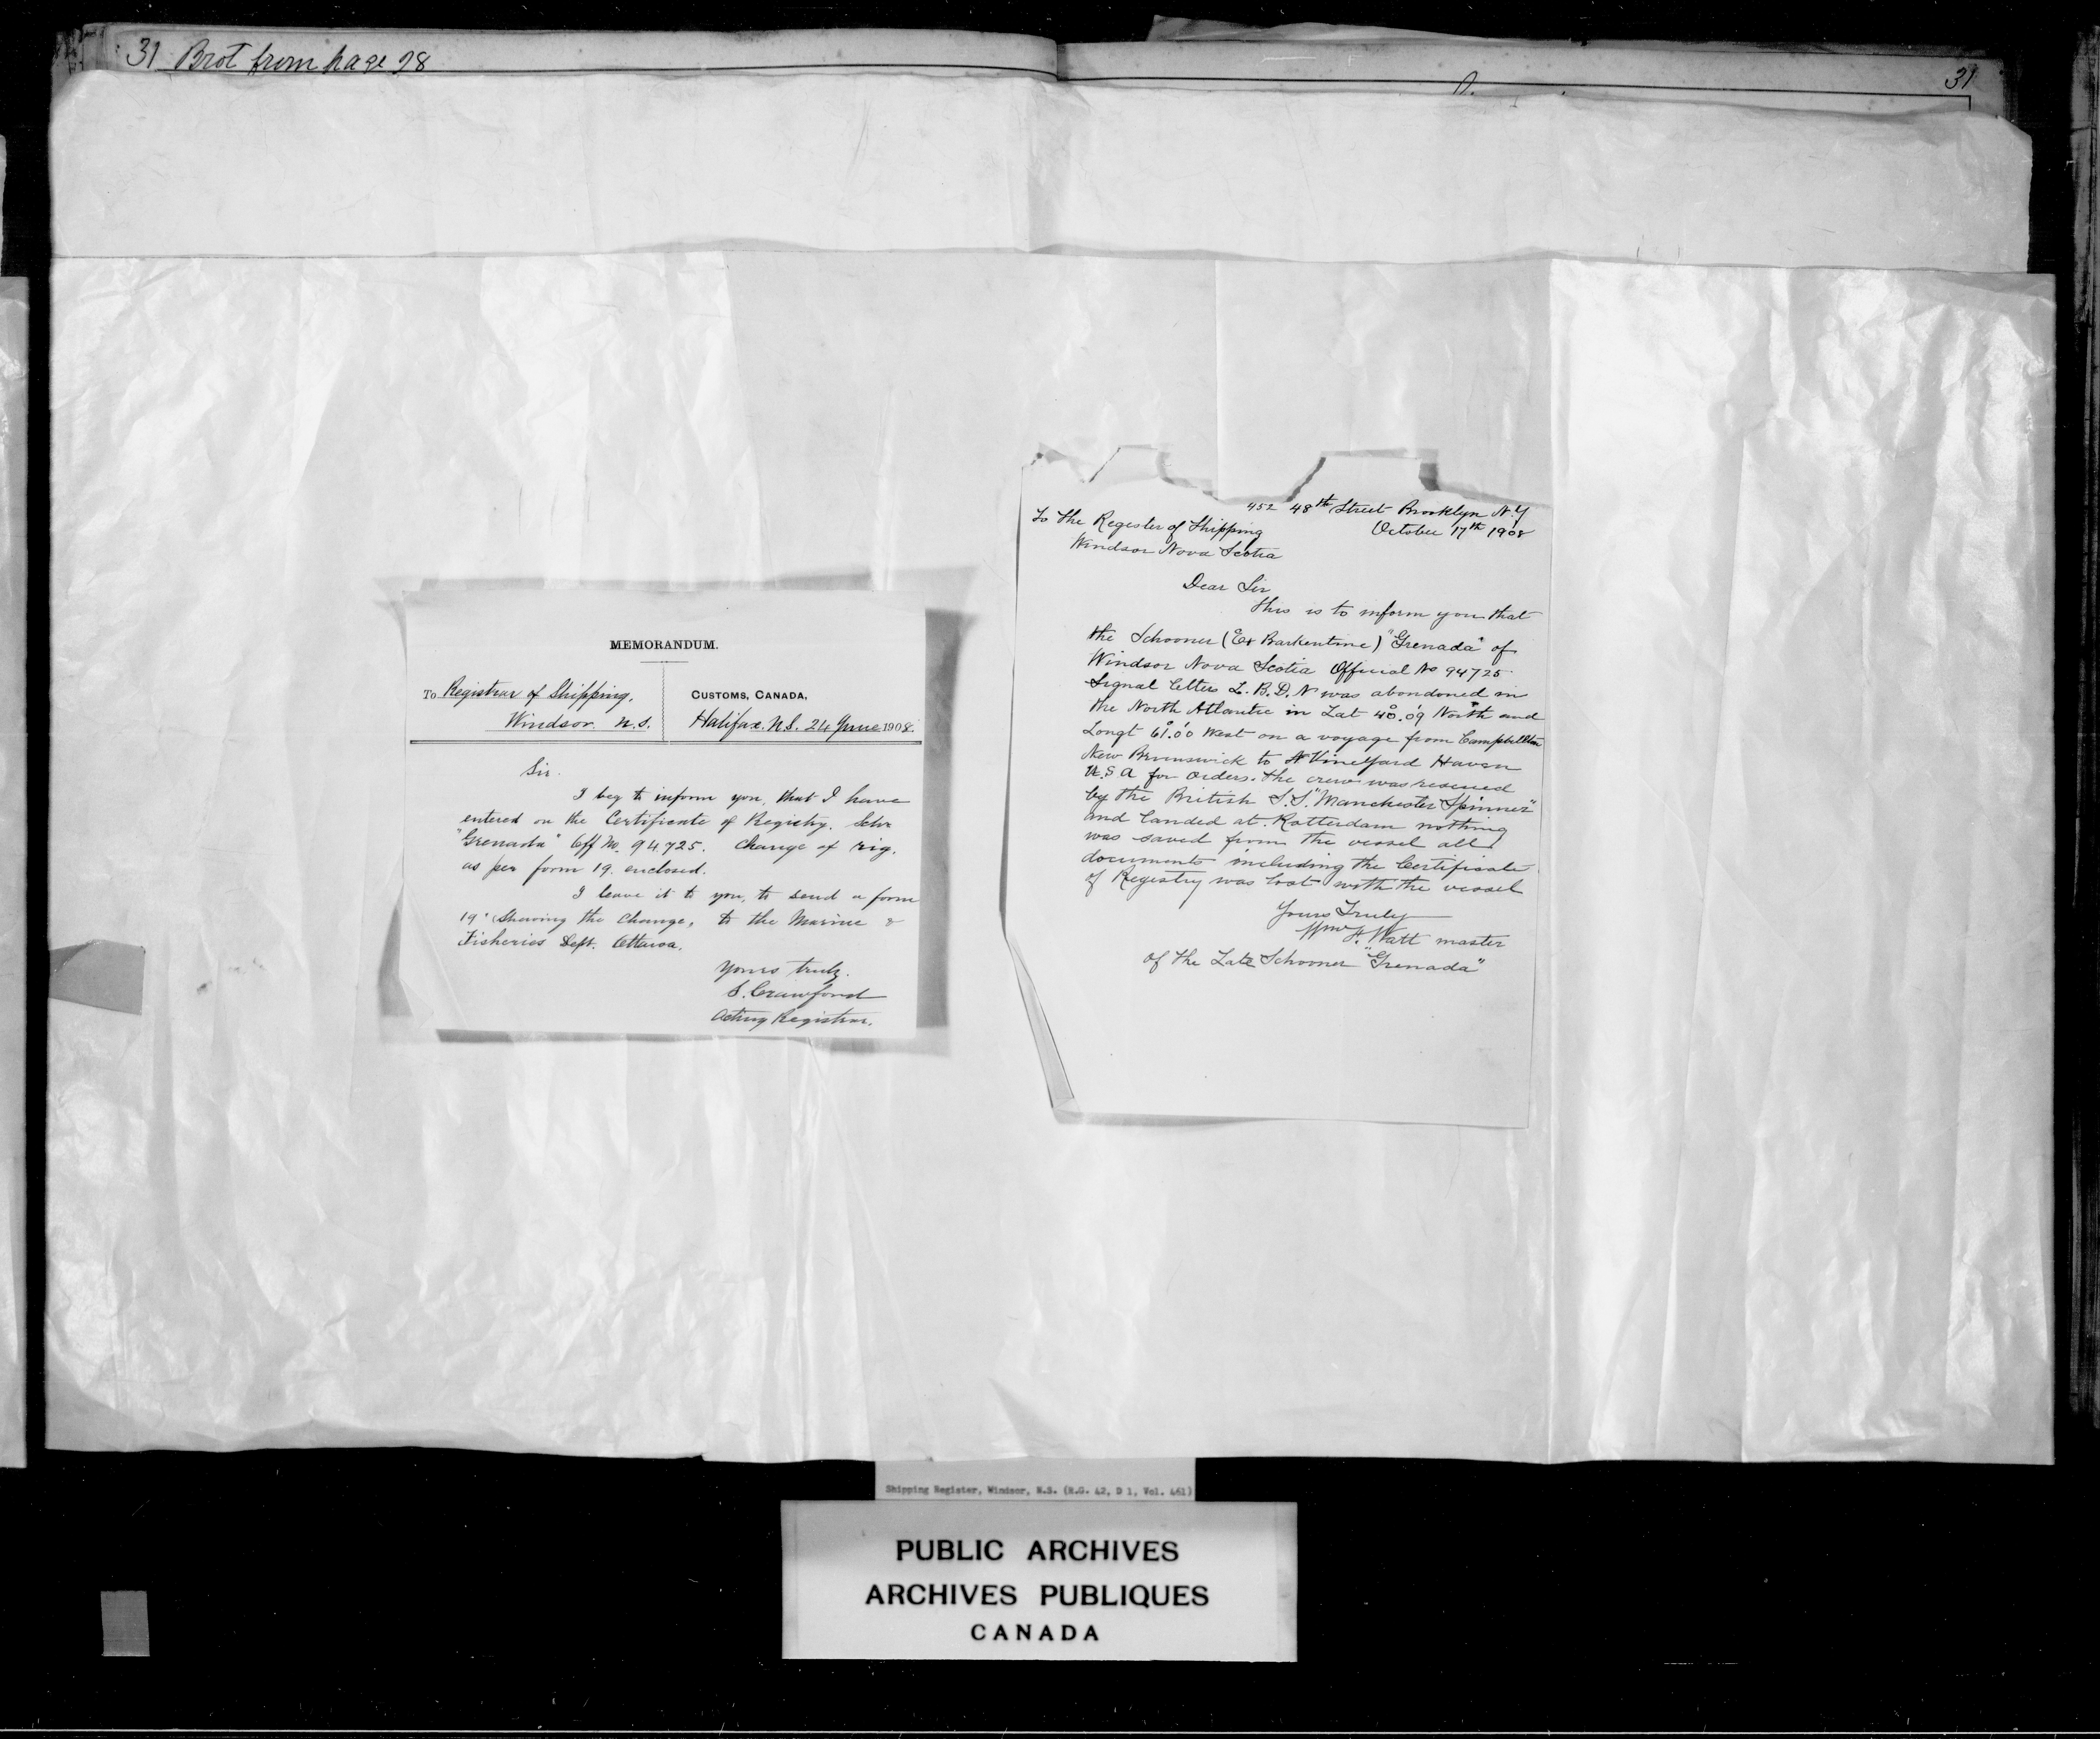 31 Brot from page 98
31
MEMORANDUM.
To Registrar of Shipping,
Windsor. N.S.
CUSTOMS, CANADA,
Halifax. N.S. 24 June 1908.
Sir.
I beg to inform you, that I have
entered on the Certificate of Registry. Schr
"Grenada" Off No. 94725. Change of rig.
as per form 19. enclosed.
I leave it to you, to send a form
19. Showing the change, to the Marine &
Fisheries Dept. Ottawa.
Yours truly.
S. Crawford
Acting Registrar.
452 48th Street Brooklyn N.Y
October 17th 1908
To The Register of Shipping
Windsor Nova Scotia
Dear Sir
This is to inform you that
the Schooner (Ex Barkentine) "Grenada" of
Windsor Nova Scotia Official No 94725
Signal letters L. B. D. N was abandoned in
the North Atlantic in Lat 40°.09' North and
Longt 61°.00' West on a voyage from Campbellton
New Brunswick to Vineyard Haven
U.S A for orders. the crew was rescued
by the British S.S. "Manchester Spinner"
and landed at Rotterdam nothing
was saved from the vessel all
documents including the Certificate
of Registry was lost with the vessel
Yours Truly
Wm H. Watt master
of the Late Schooner "Grenada"
Shipping Register, Windsor, N.S. (R.G. 42, D 1, Vol. 461)
PUBLIC ARCHIVES
ARCHIVES PUBLIQUES
CANADA